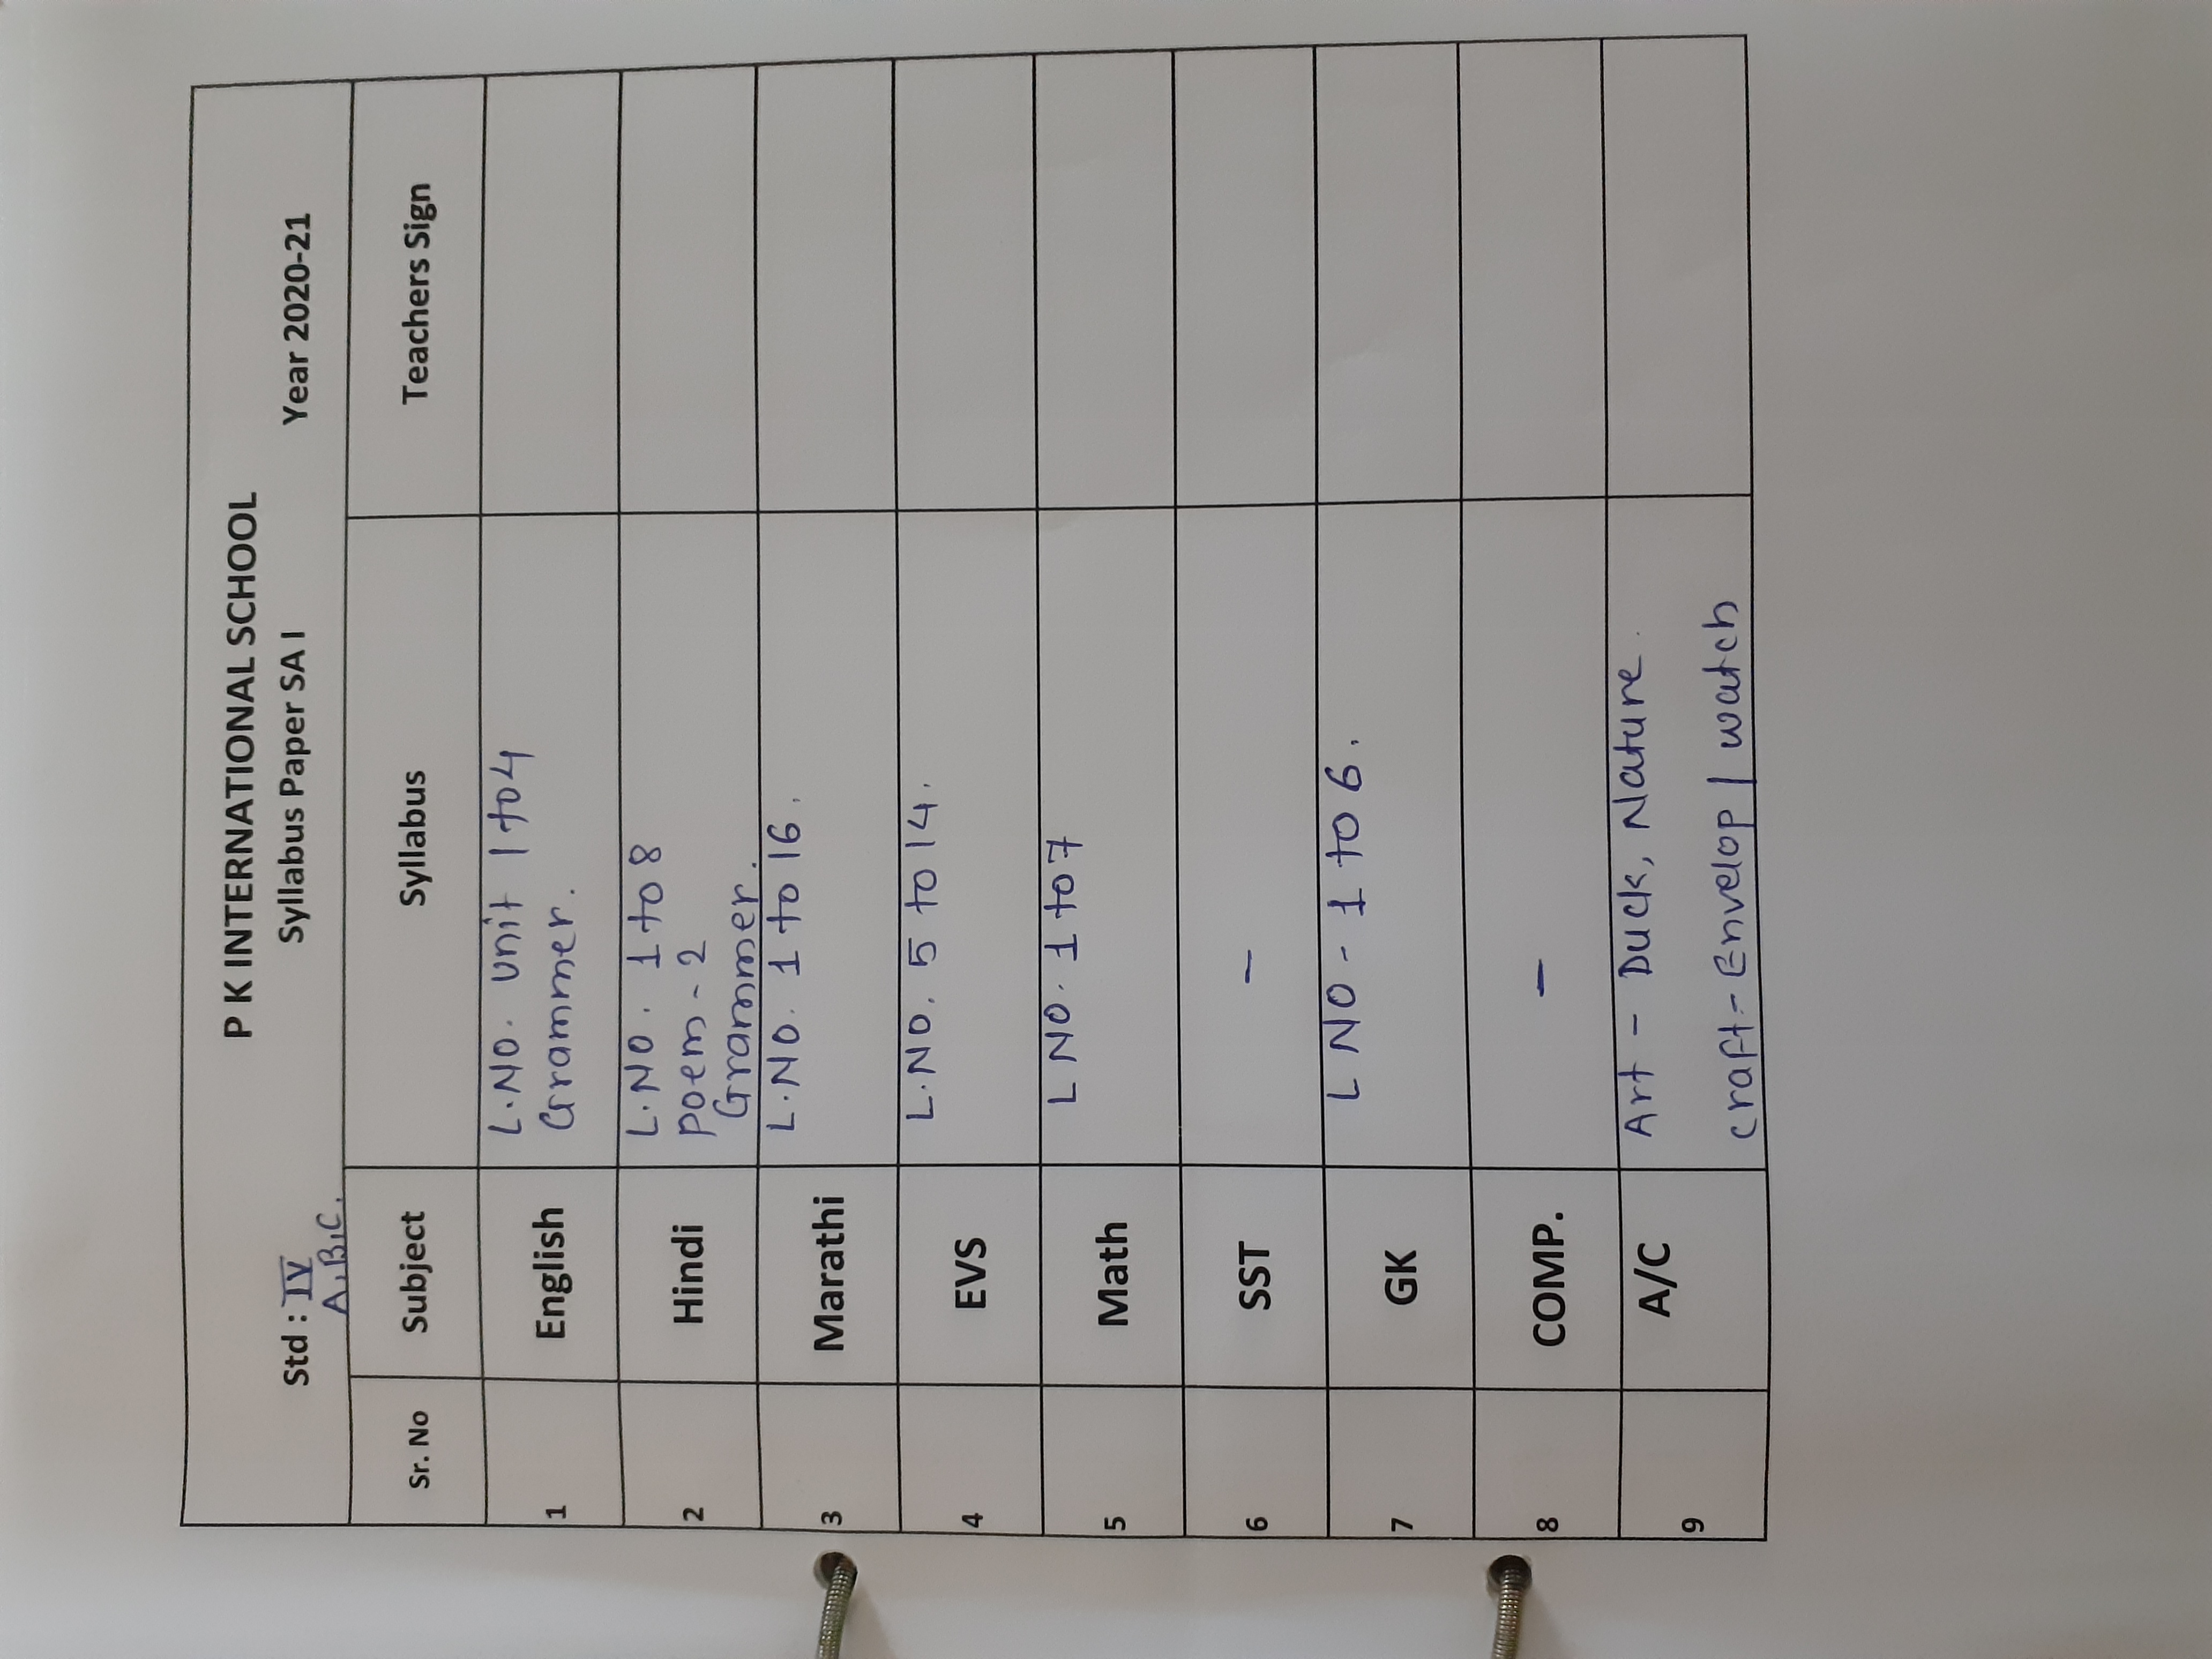 P K INTERNATIONAL SCHOOL
Std : IV Syllabus Paper SA I Year 2020-21
A,B,C.
Sr. No Subject Syllabus Teachers Sign
1 English L.NO. unit 1 to 4
Grammer.
2 Hindi L.NO. 1 to 8
poem - 2
Grammer.
3 Marathi L.NO. 1 to 16.
4 EVS L.NO. 5 to 14.
5 Math L NO. 1 to 7
6 SST -
7 GK L NO - 1 to 6.
8 COMP. -
9 A/C Art - Duck, Nature.
craft - Envelop | watch